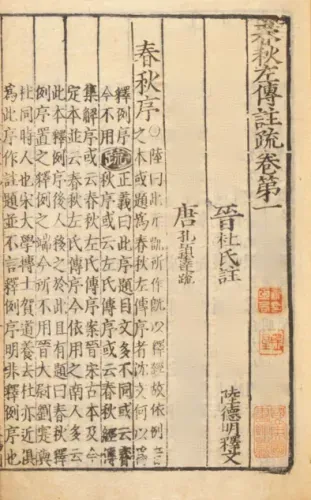 春秋左傳註疏卷第一
晉杜氏註
唐孔穎達疏
陸德明釋文
春秋序
陸曰此元凱所作既以釋經故依例
之本或題為春秋左傳序者沈文何以為
釋例序今不用
疏
正義曰此序題目文多不同或云春秋序或云左氏傳序或云春秋經傳
集解序或云春秋左氏傳序案晉宋古本及今
定本並云春秋左氏傳序今依用之南人多云
此本釋例序後人移之於此且有題曰春秋釋
例序置之釋例之端今所不用晉大尉劉寔與
杜同時人也宋大學博士賀道養去杜亦近俱
為此序作註題並不言釋例序明非釋例序也